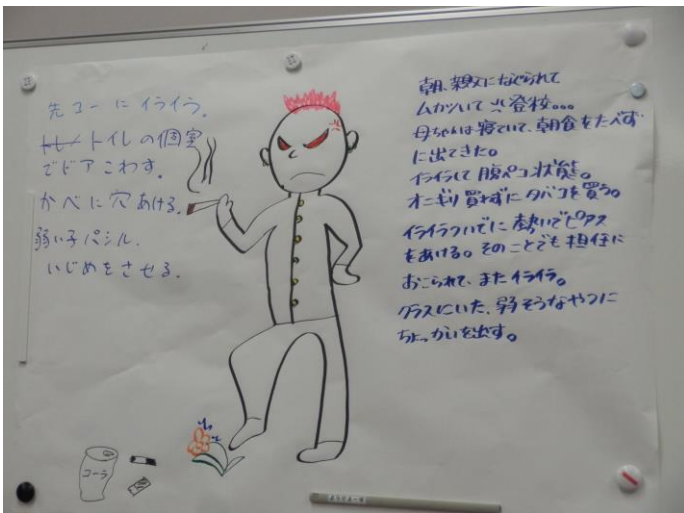 先コーにイライラ。
トレ トイレの個室
でドアこわす。
かべに穴あける。
弱い子パシル.
いじめをさせる.
朝、親父になぐられて
ムカついて登校。。。
母ちゃんは寝ていて、朝食をたべず
に出てきた。
イライラして腹ペコ状態。
オニギリ買わずにタバコを買う。
イライラついでに勢いでピアス
をあける。そのことでも担任に
おこられて、またイライラ。
クラスにいた、弱そうなやつに
ちょっかいを出す。
コーラ